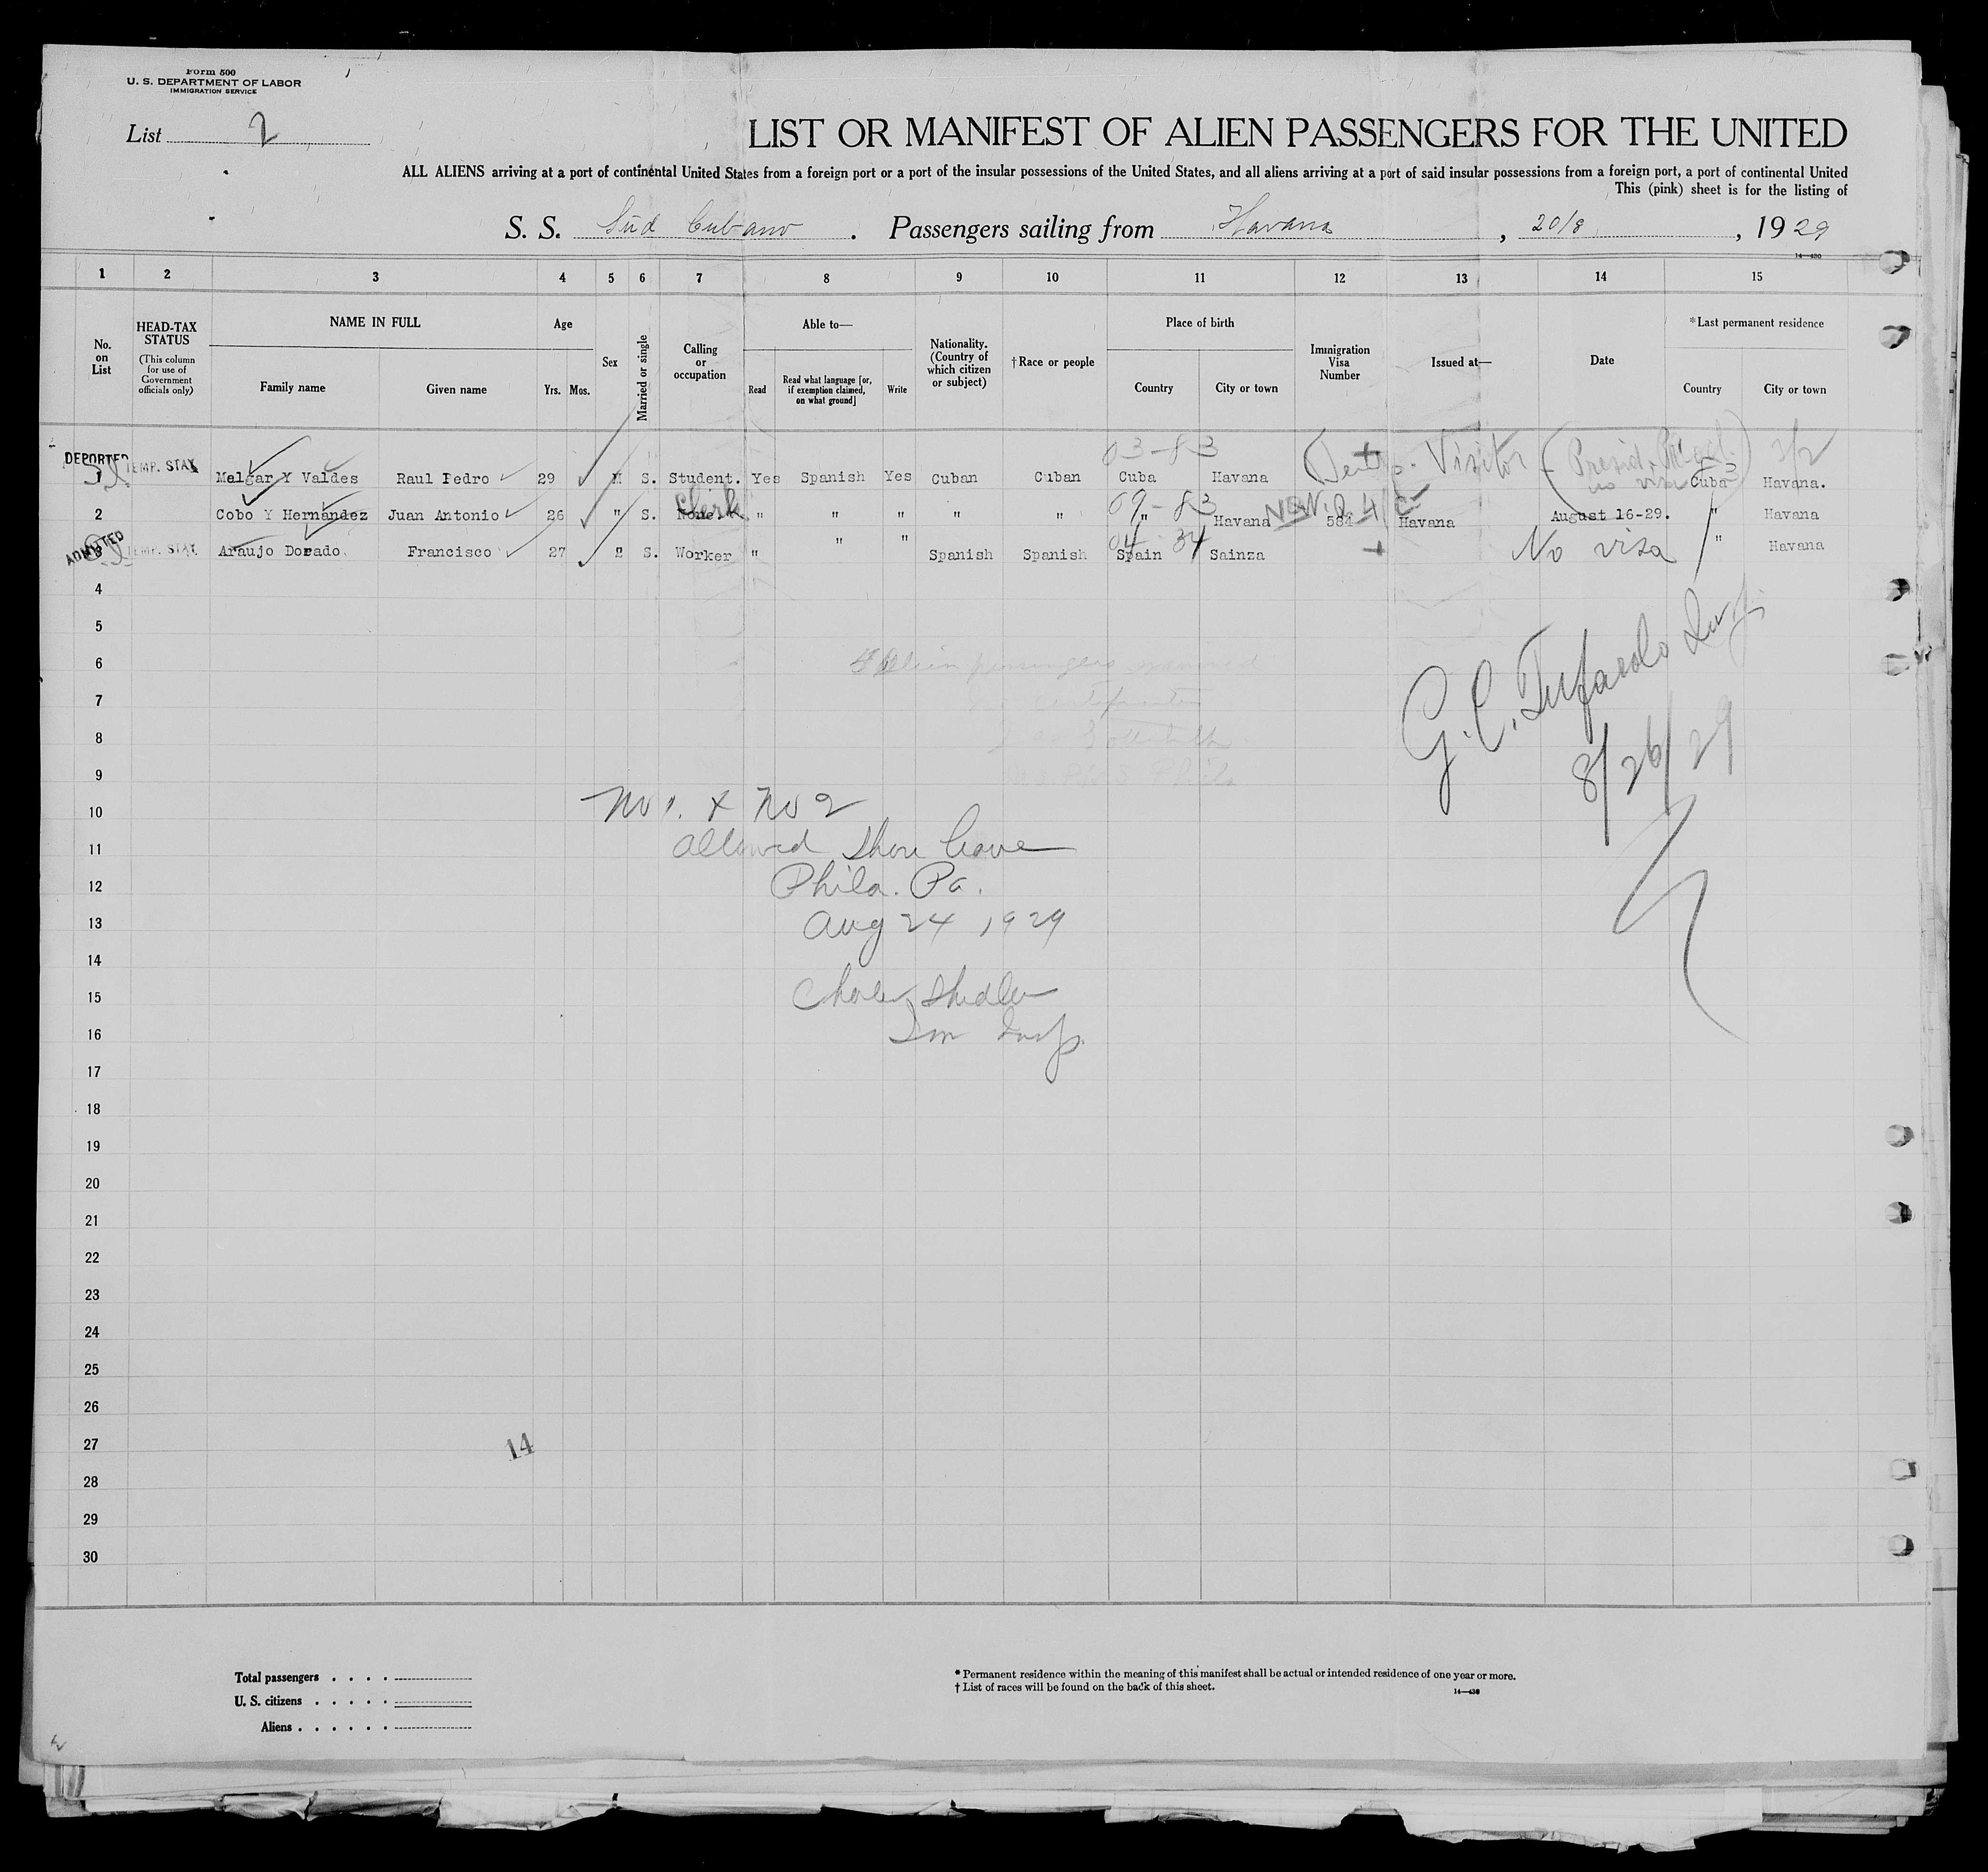 Form 500
U. S. DEPARTMENT OF LABOR
IMMIGRATION SERVICE
List 2
LIST OR MANIFEST OF ALIEN PASSENGERS FOR THE UNITED
ALL ALIENS arriving at a port of continental United States from a foreign port or a port of the insular possessions of the United States, and all aliens arriving at a port of said insular possessions from a foreign port, a port of continental United
This (pink) sheet is for the listing of
S. S. Sud Cubano . Passengers sailing from Havana , 20/8 , 1929
14—430
1 2 3 4 5 6 7 8 9 10 11 12 13 14 15
No. on List
HEAD-TAX STATUS (This column for use of Government officials only)
NAME IN FULL Family name Given name
Age Yrs. Mos.
Sex
Married or single
Calling or occupation
Able to— Read Read what language [or, if exemption claimed, on what ground] Write
Nationality. (Country of which citizen or subject)
†Race or people
Place of birth Country City or town
Immigration Visa Number
Issued at—
Date
*Last permanent residence Country City or town
03-83 Visitor
DEPORTED
1 TEMP. STAY Melgar Y Valdes Raul Pedro 29 M S. Student. Yes Spanish Yes Cuban Cuban Cuba Havana no visa Cuba Havana.
Clerk 09-83
2 Cobo Y Hernandez Juan Antonio 26 " S. None. " " " " " " Havana 584 Havana August 16-29. " Havana
ADMITTED 04 34
TEMP. STAY Araujo Dorado. Francisco 27 " S. Worker " " " Spanish Spanish Spain Sainza No visa " Havana
4
5
6
7
8
9
G. C. Tufarolo Insp
8/26/29
10 No 1. & No 2
11 allowed Shore leave
12 Phila. Pa.
13 Aug 24 1929
14
15 Shedler
16 Im Insp.
17
18
19
20
21
22
23
24
25
26
27 14
28
29
30
Total passengers . . . .
U. S. citizens . . . . .
Aliens . . . . . .
* Permanent residence within the meaning of this manifest shall be actual or intended residence of one year or more.
† List of races will be found on the back of this sheet.
14—430